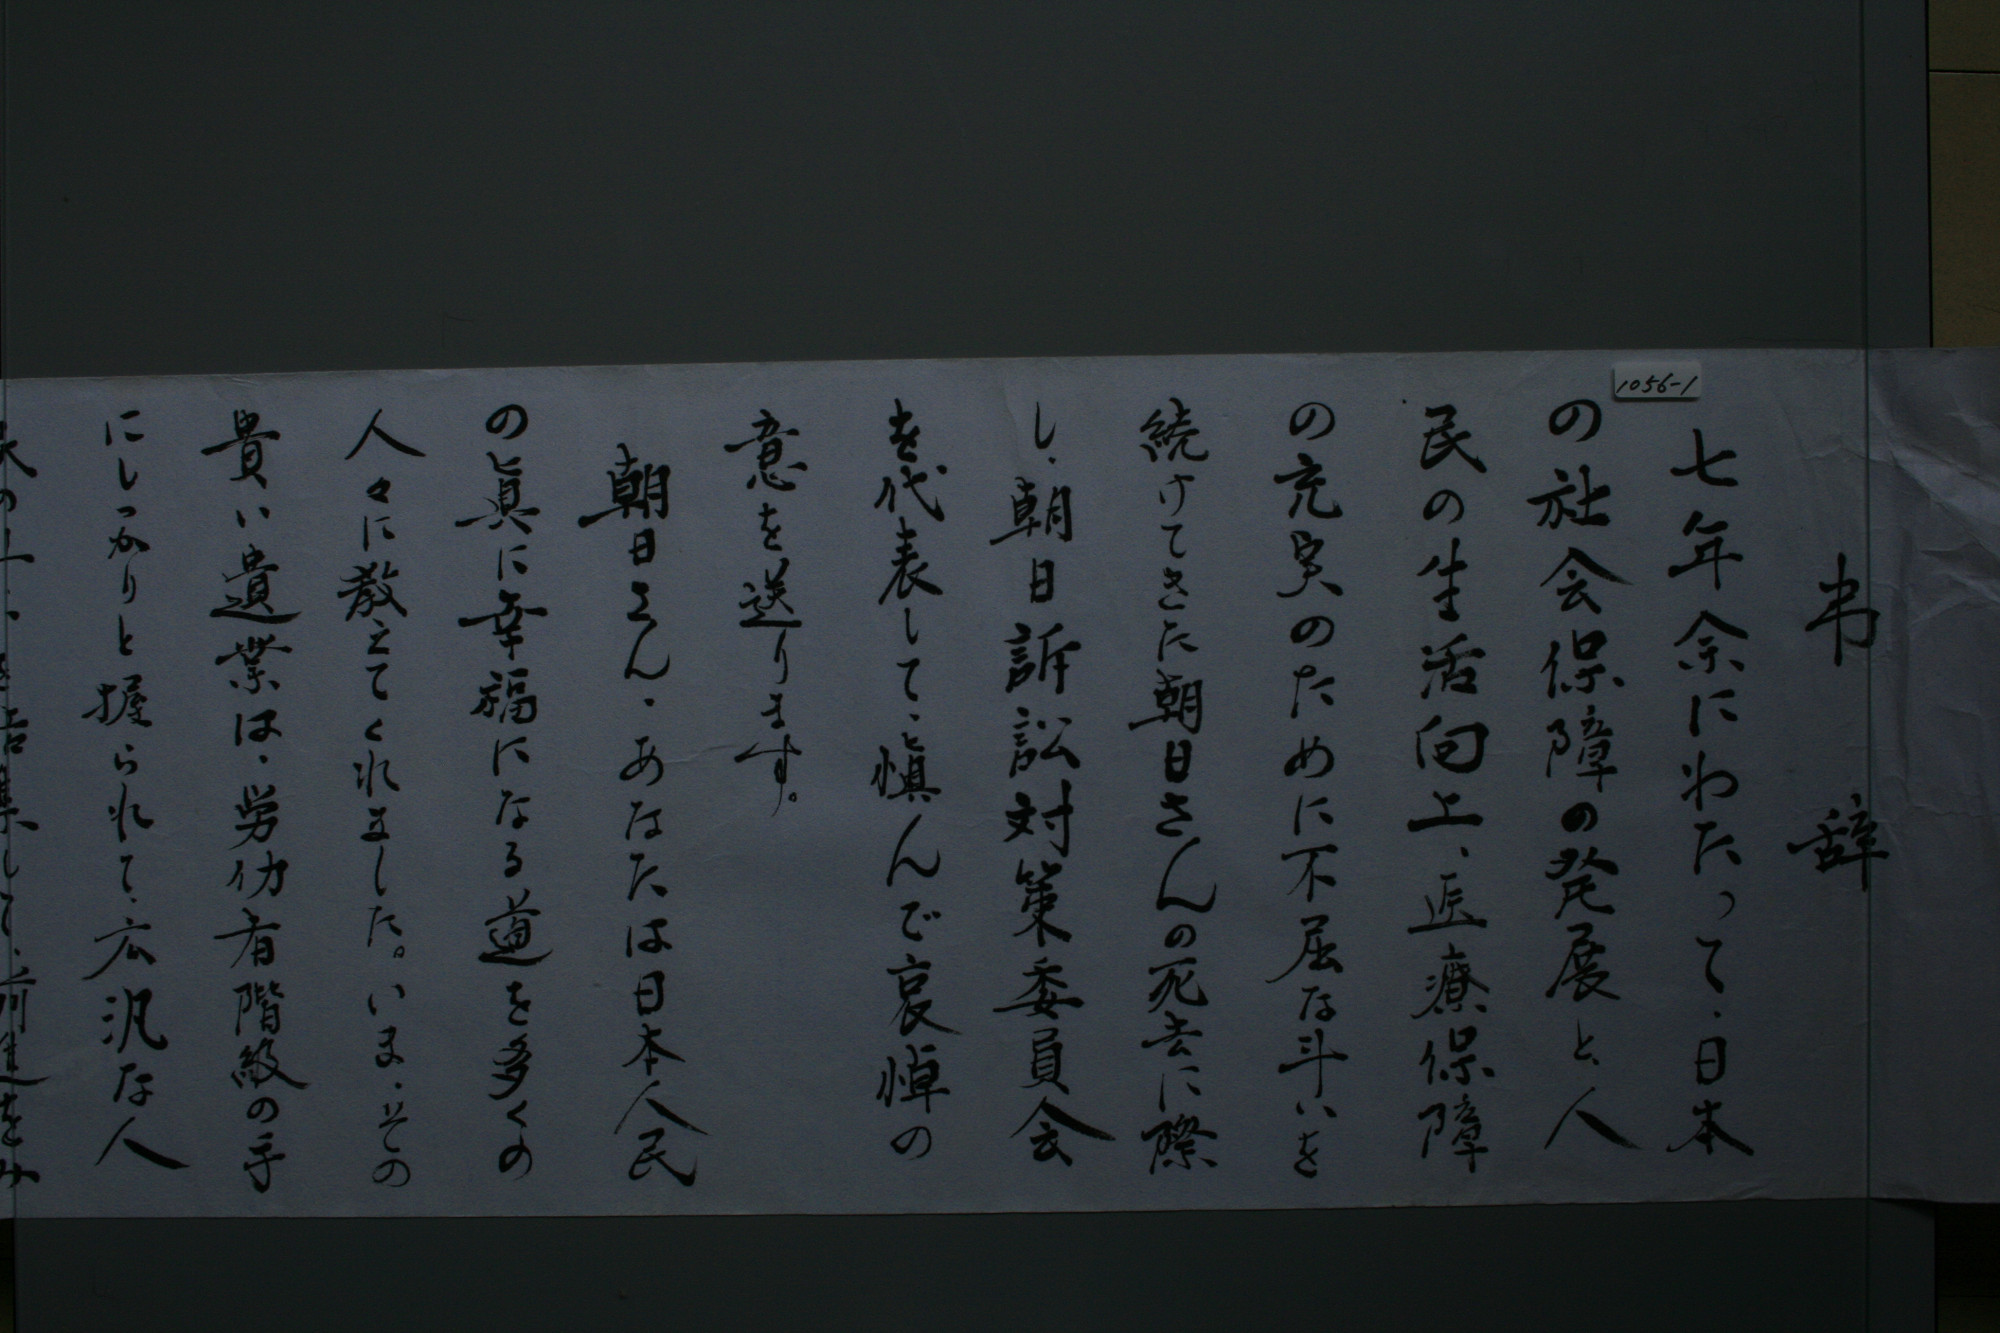 1056-1
弔辞
七年余にわたって、日本
の社会保障の発展と、人
民の生活向上、医療保障
の充実のために不屈な斗いを
続けてきた朝日さんの死去に際
し、朝日訴訟対策委員会
を代表して、慎んで哀悼の
意を送ります。
朝日さん、あなたは日本人民
の真に幸福になる道を多くの
人々に教えてくれました。いま、その
貴い遺業は、労仂者階級の手
にしっかりと握られて、広汎な人
して、前進をみ